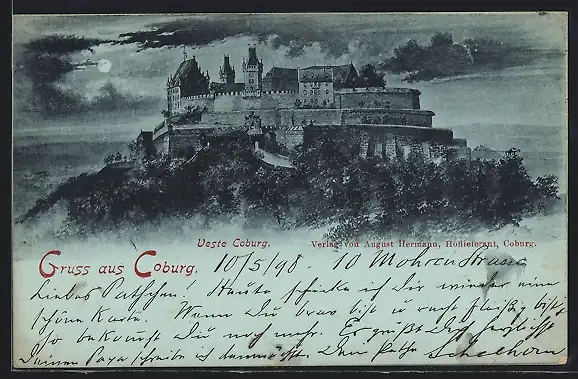 Veste Coburg.
Verlag von August Hermann, Hoflieferant, Coburg.
Gruss aus Coburg. 10/5/98. 10 Mohrenstrasse
Liebes Patchen! Heute schicke ich dir wieder eine
schöne Karte. Wenn Du brav bist u. recht fleißig bist
so bekomst Du noch mehr. Es grüßt Dich herzlichst
Deinen Papa schreibe ich demnächst. Dein Pathe Schelhorn